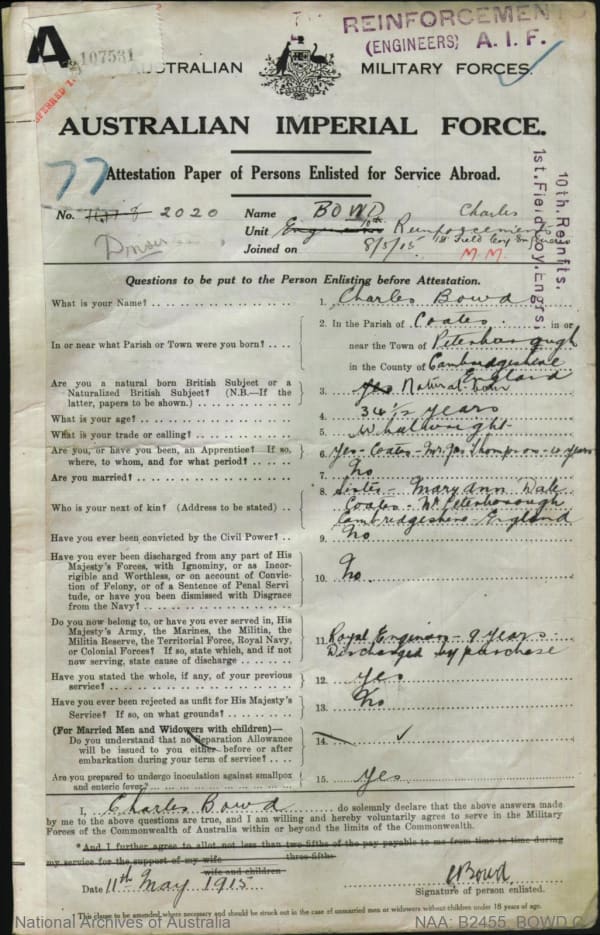 A
107531
REINFORCEMEN
(ENGINEERS) A. I. F.
AUSTRALIAN MILITARY FORCES.
AUSTRALIAN IMPERIAL FORCE.
77
Attestation Paper of Persons Enlisted for Service Abroad.
No. 2020 Name BOWD Charles
Unit Engineers 10th Reinforcements
1st Field Coy Engineers
Joined on 8/5/15 M.M.
Driver
10th. Reinfts.
1st. Field Coy. Engrs.
Questions to be put to the Person Enlisting before Attestation.
What is your Name? 1. Charles Bowd
In or near what Parish or Town were you born? 2. In the Parish of Coates in or
near the Town of Peterborough
in the County of Cambridgeshire
England
Are you a natural born British Subject or a
Naturalized British Subject? (N.B.—If the
latter, papers to be shown.) 3. Yes Natural born
What is your age? 4. 34 1/2 years
What is your trade or calling? 5. Wheelwright
Are you, or have you been, an Apprentice? If so,
where, to whom, and for what period? 6. Yes - Coates - Mr Jas Thompson - 10 years
Are you married? 7. No
Who is your next of kin? (Address to be stated) 8. Sister - Mary Ann Dale
Coates - Nr Peterborough
Cambridgeshire - England
Have you ever been convicted by the Civil Power? 9. No
Have you ever been discharged from any part of His
Majesty's Forces, with Ignominy, or as Incor-
rigible and Worthless, or on account of Convic-
tion of Felony, or of a Sentence of Penal Servi-
tude, or have you been dismissed with Disgrace
from the Navy? 10. No.
Do you now belong to, or have you ever served in, His
Majesty's Army, the Marines, the Militia, the
Militia Reserve, the Territorial Force, Royal Navy,
or Colonial Forces? If so, state which, and if not
now serving, state cause of discharge 11. Royal Engineers - 9 years
Discharged by purchase
Have you stated the whole, if any, of your previous
service? 12. Yes
Have you ever been rejected as unfit for His Majesty's
Service? If so, on what grounds? 13. No
(For Married Men and Widowers with children)—
Do you understand that no Separation Allowance
will be issued to you either before or after
embarkation during your term of service? 14.
Are you prepared to undergo inoculation against smallpox
and enteric fever? 15. Yes
I, Charles Bowd do solemnly declare that the above answers made
by me to the above questions are true, and I am willing and hereby voluntarily agree to serve in the Military
Forces of the Commonwealth of Australia within or beyond the limits of the Commonwealth.
*And I further agree to allot not less than two-fifths of the pay payable to me from time to time during
three-fifths
my service for the support of my wife
wife and children
Date 11th May 1915 C Bowd
Signature of person enlisted.
*This clause to be amended, where necessary and should be struck out in the case of unmarried men or widowers without children under 18 years of age.
National Archives of Australia NAA: B2455, BOWD C